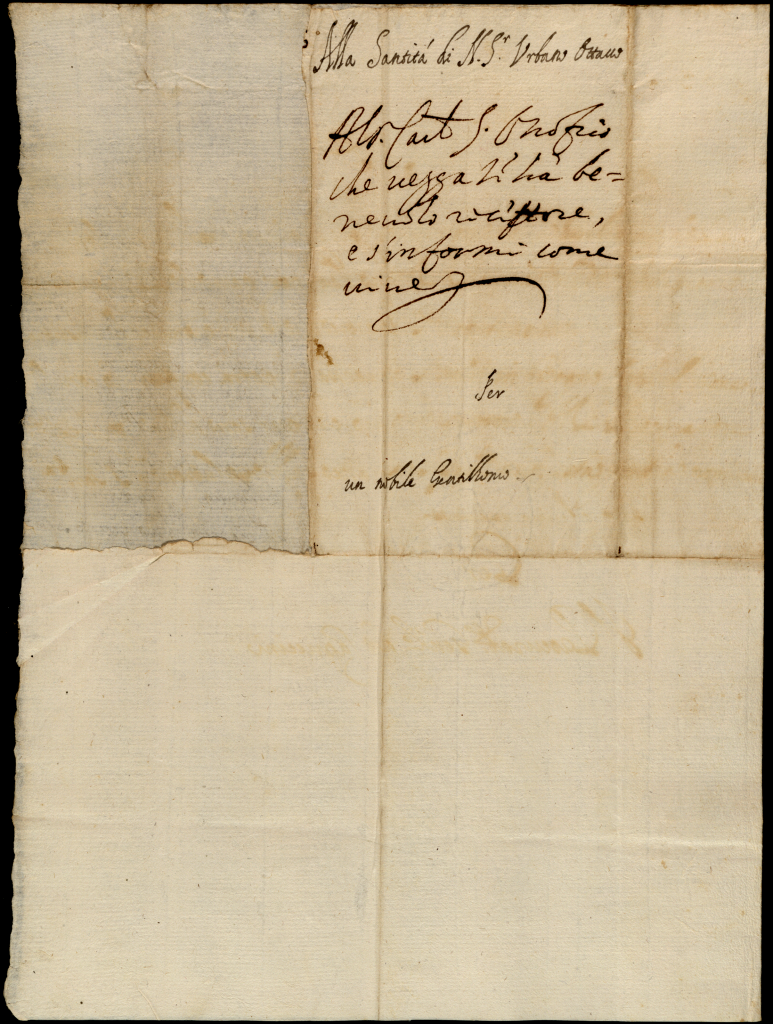 Alla Santità di N. Sr. Urbano Ottavo
Al Sr. Card. S. Onofrio
che vegga se ha be=
ne
e s'informi come
vive
Per
un nobile Gentilhomo